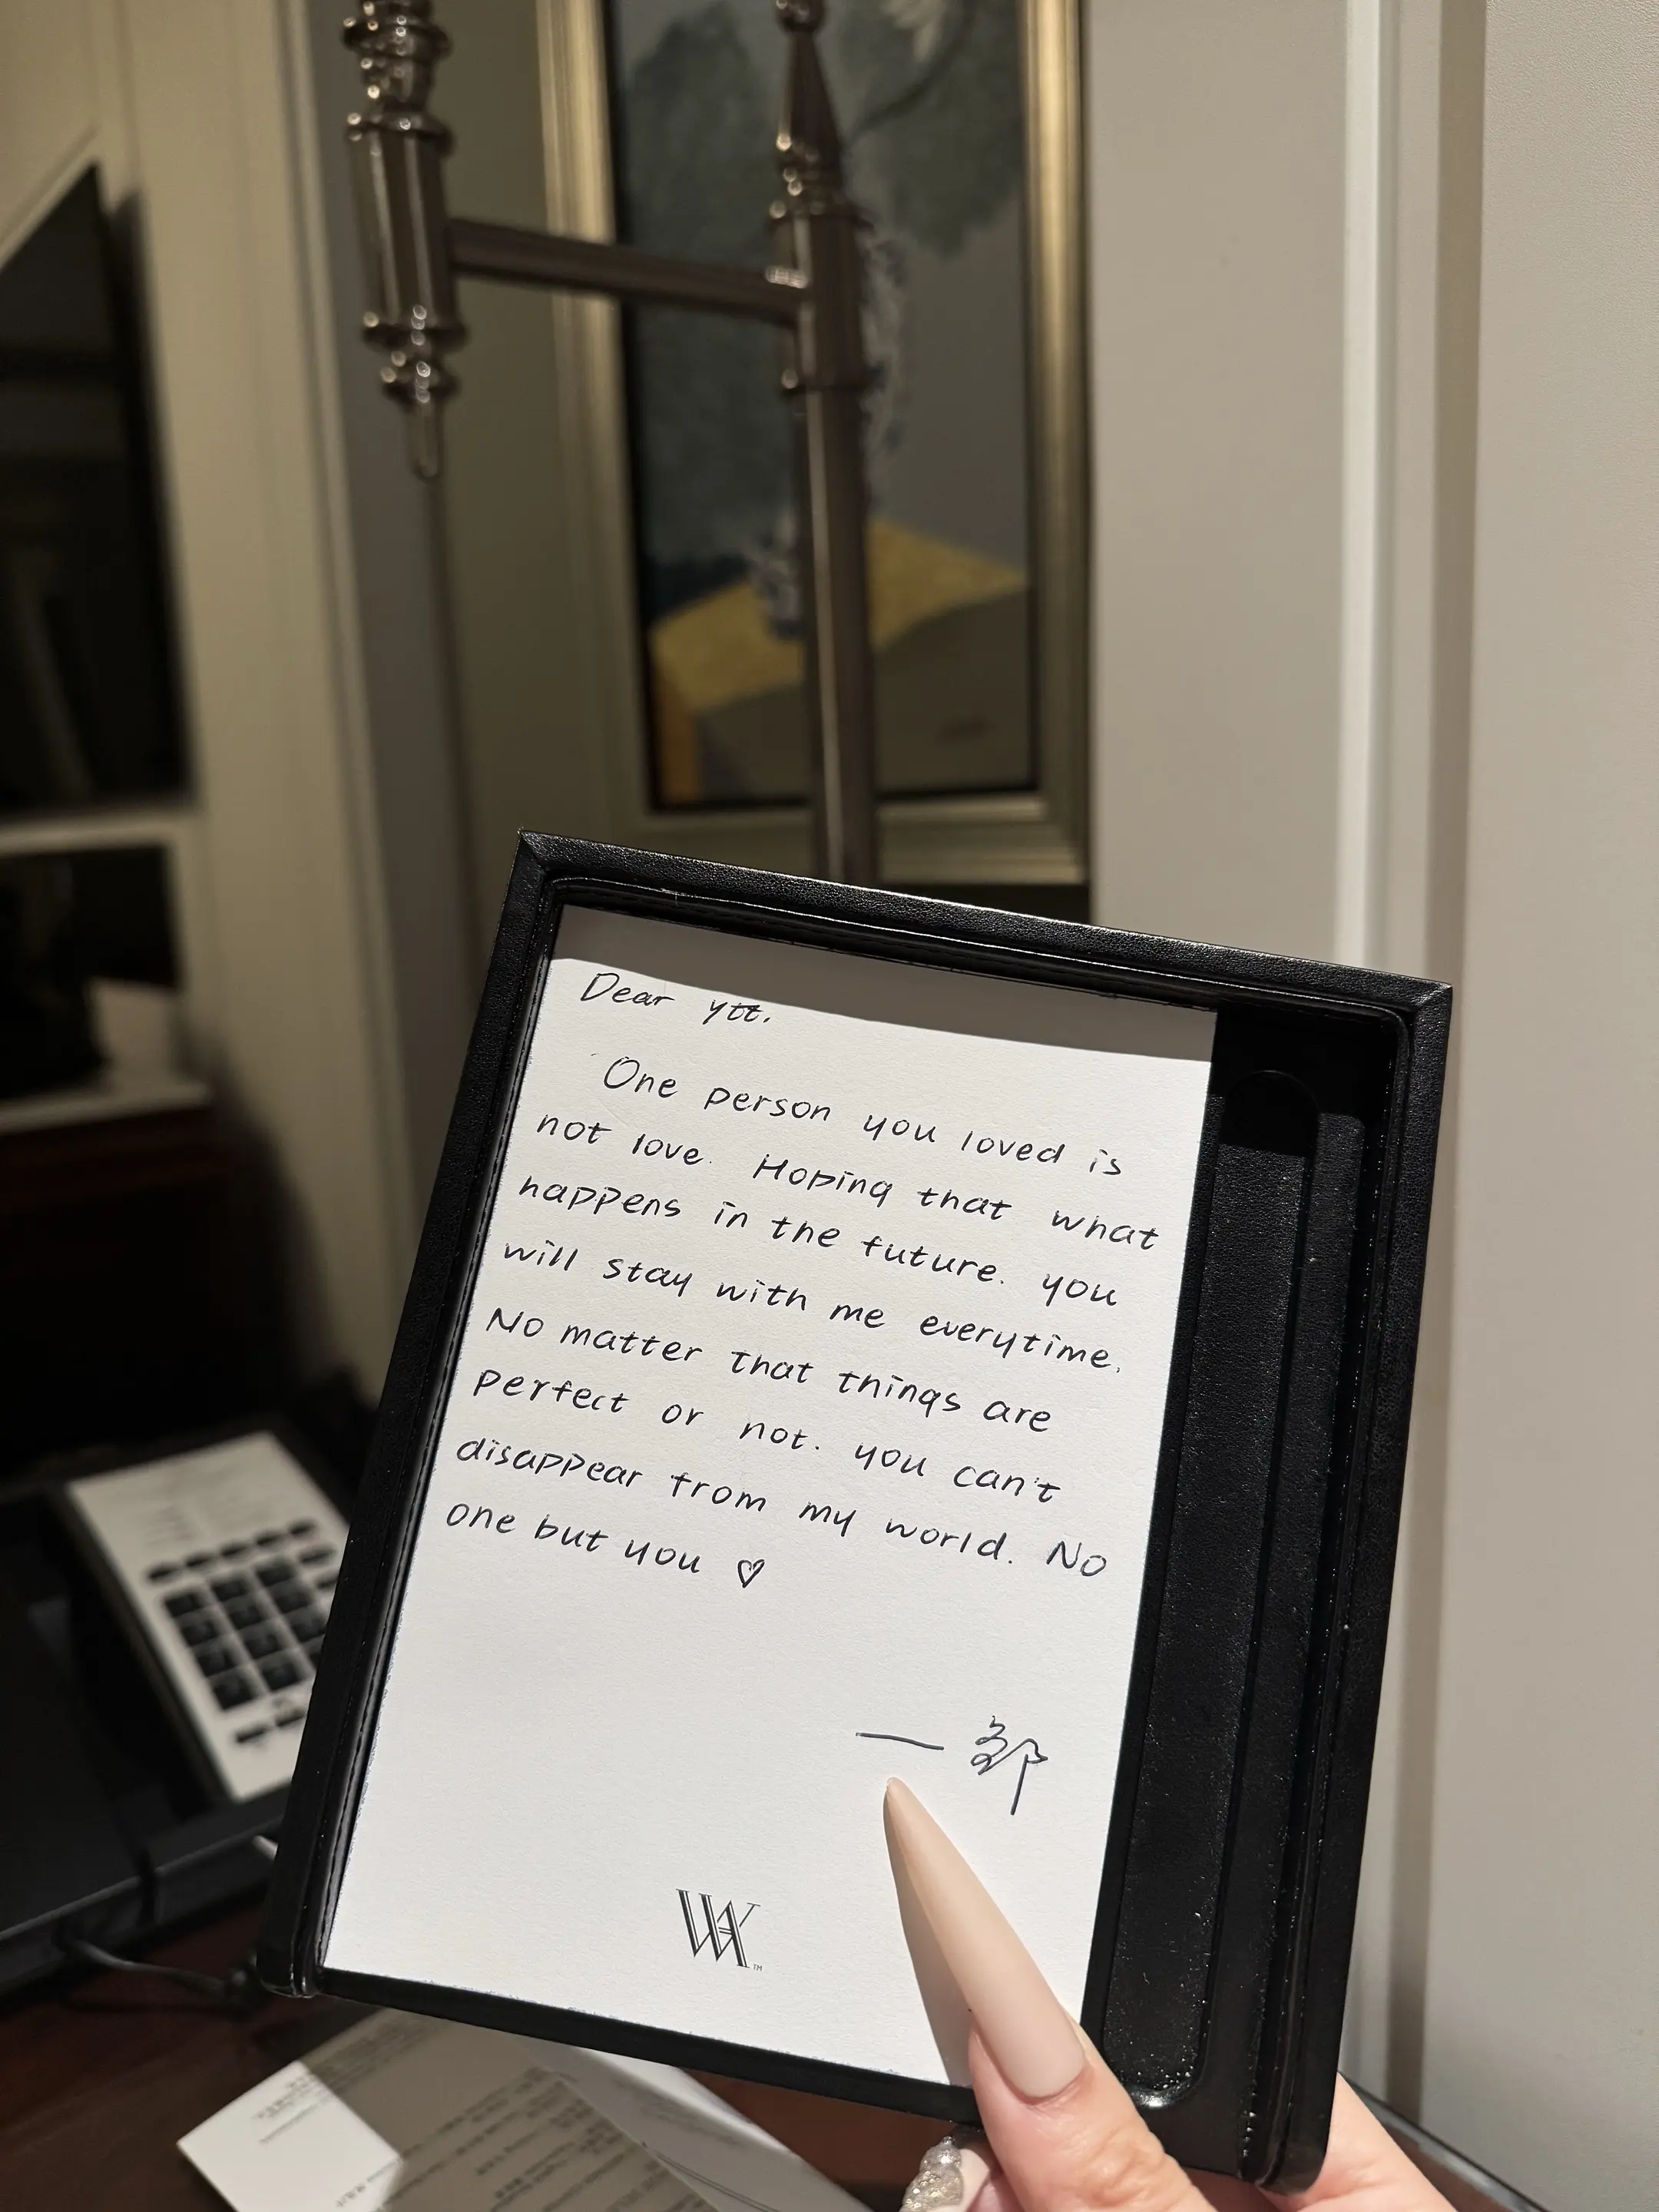 Dear ytt.
One person you loved is
not love. Hoping that what
happens in the future. you
will stay with me everytime.
No matter that things are
perfect or not. you can't
disappear from my world. No
one but you ♡
一 邹
WA
TM